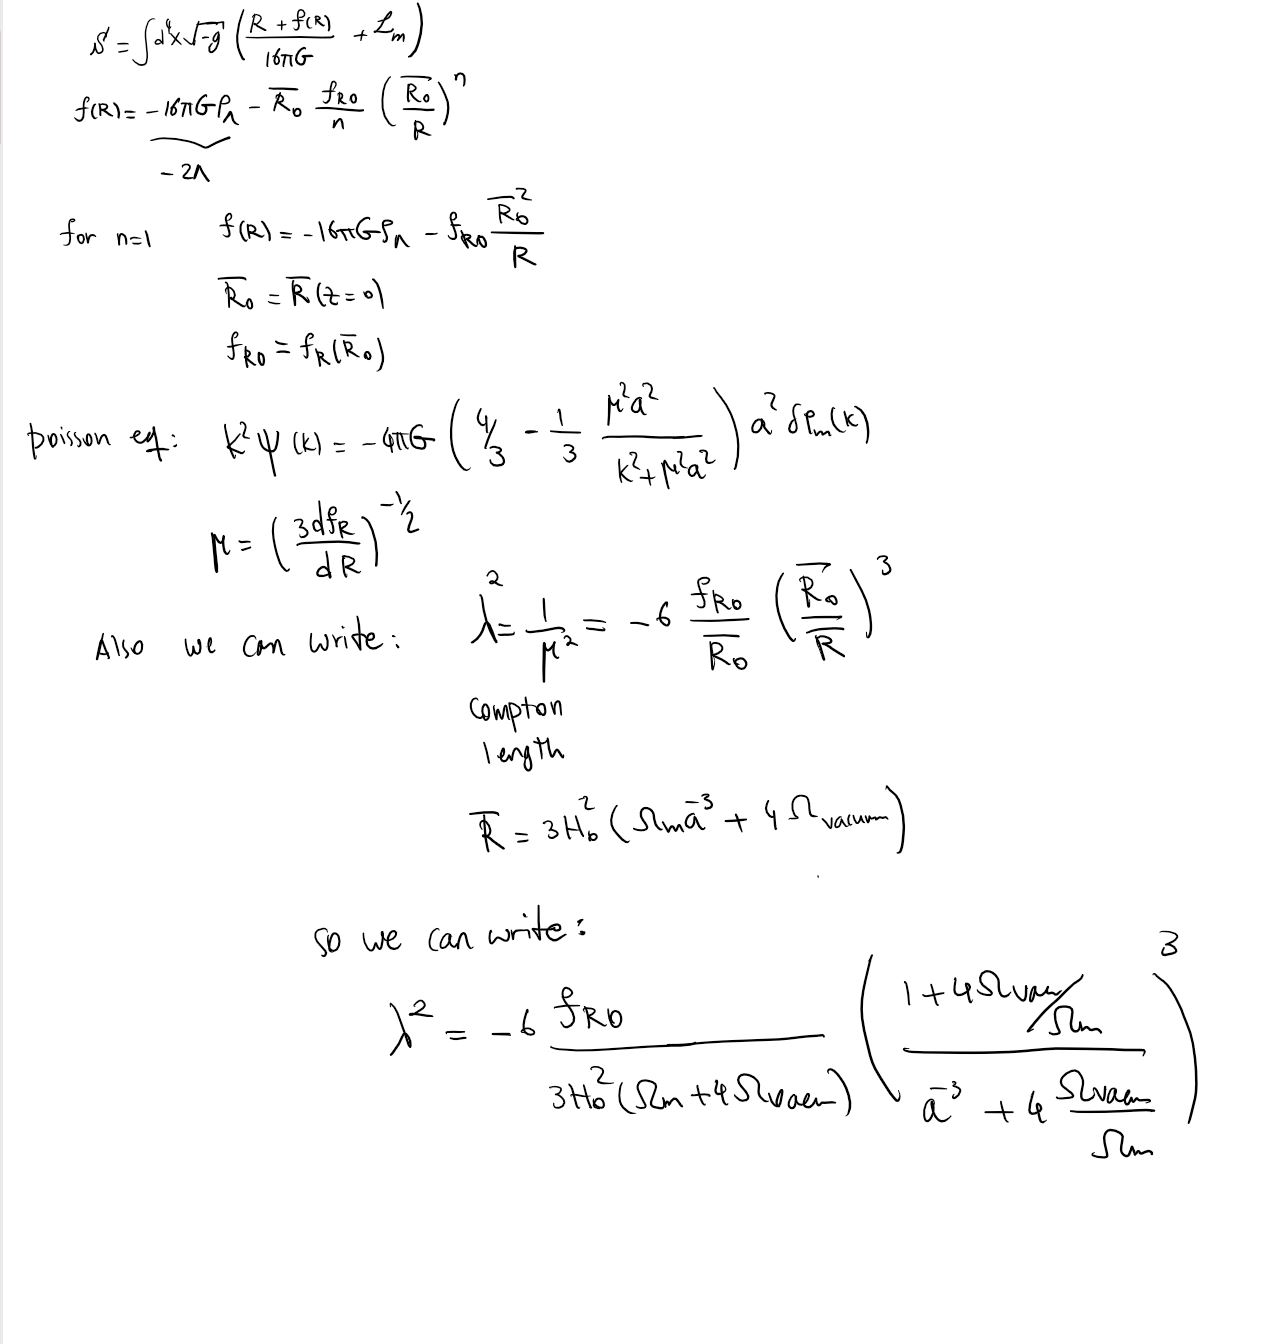 S = ∫d⁴x√-g ( (R + f(R))/16πG + ℒₘ )
f(R) = -16πGρ_Λ - R̄₀ f_R0/n (R̄₀/R)ⁿ
-2Λ
for n=1 f(R) = -16πGρ_Λ - f_R0 R̄₀²/R
R̄₀ = R̄(z=0)
f_R0 = f_R(R̄₀)
poisson eq: k²ψ(k) = -4πG ( 4/3 - 1/3 μ²a²/(k²+μ²a²) ) a² δρₘ(k)
μ = ( 3df_R/dR )^(-1/2)
Also we can write: λ² = 1/μ² = -6 f_R0/R̄₀ ( R̄₀/R̄ )³
Compton
length
R̄ = 3H₀² ( Ωₘa⁻³ + 4Ω_vacuum )
so we can write:
λ² = -6 f_R0/(3H₀²(Ωₘ+4Ω_vacum)) ( (1+4Ω_vacu/Ωₘ)/(a⁻³ + 4 Ω_vacum/Ωₘ) )³